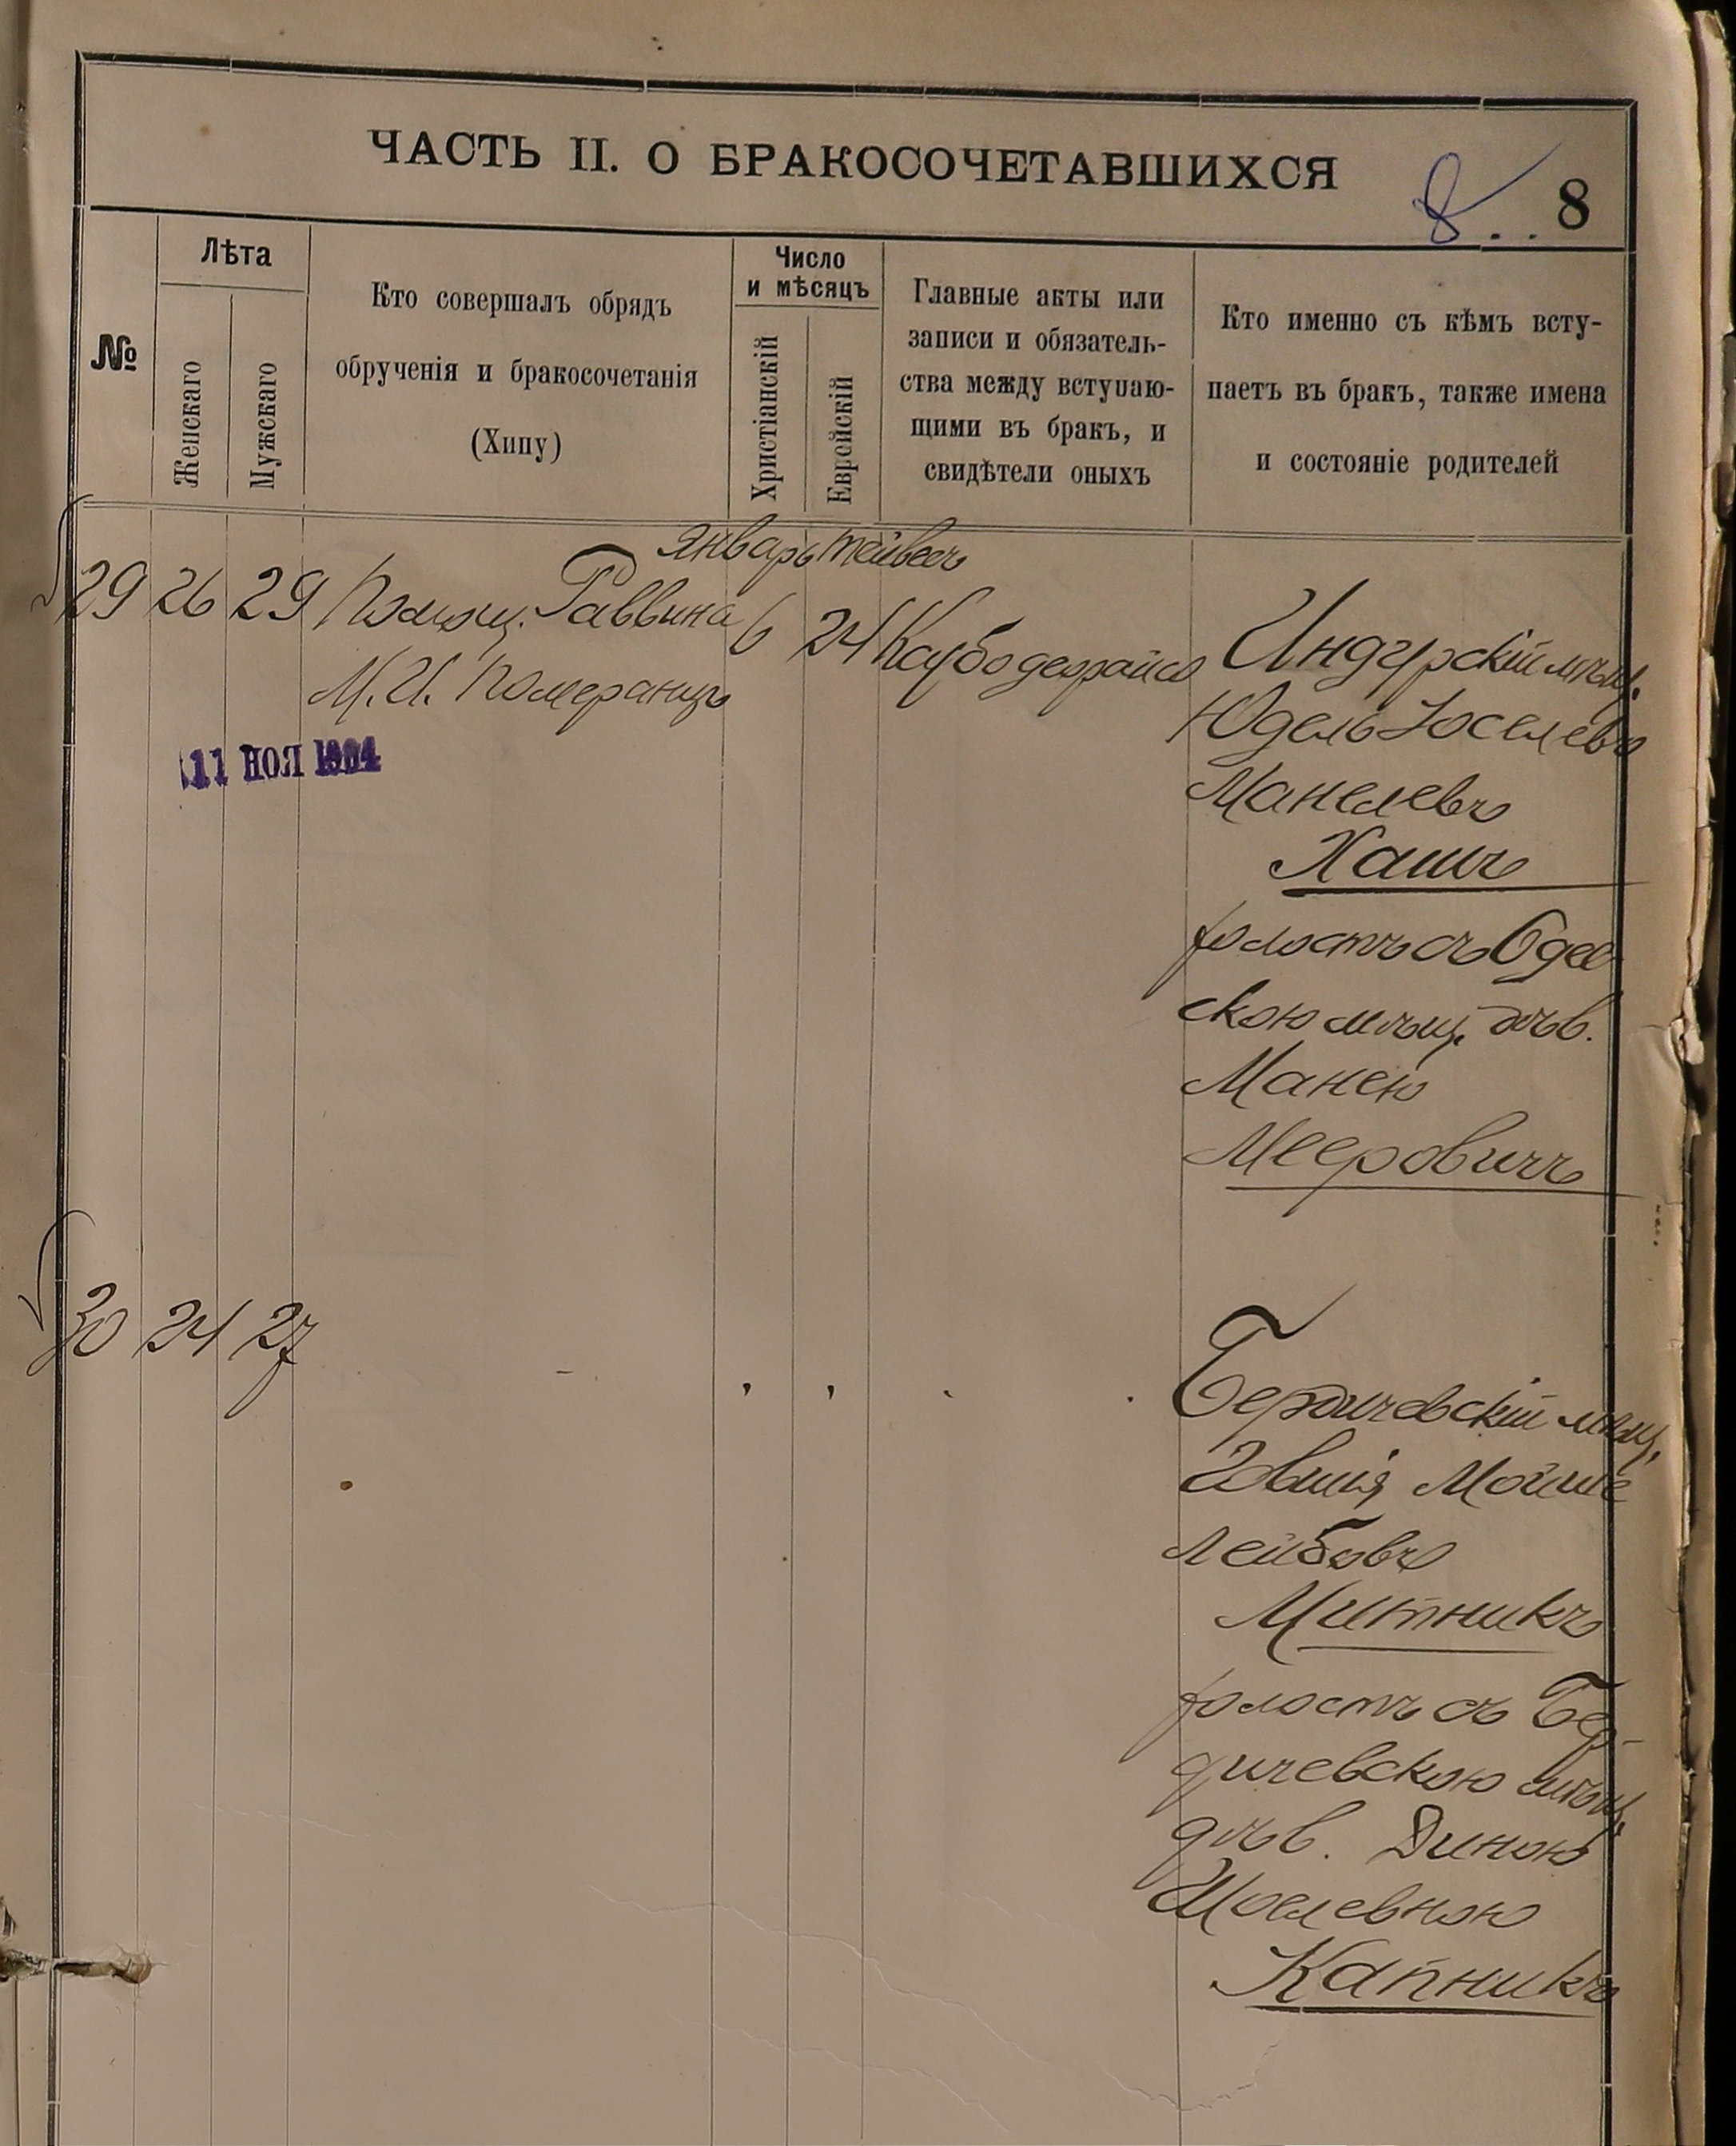 ЧАСТЬ II. О БРАКОСОЧЕТАВШИХСЯ
8 8
№
Лѣта
Женскаго
Мужскаго
Кто совершалъ обрядъ
обрученія и бракосочетанія
(Хипу)
Число
и мѣсяцъ
Христіанскій
Еврейскій
Главные акты или
записи и обязатель-
ства между вступаю-
щими въ бракъ, и
свидѣтели оныхъ
Кто именно съ кѣмъ всту-
паетъ въ бракъ, также имена
и состояніе родителей
январь тейвесъ
29 26 29 Помощ. Раввина 6 24
М. И. Померанцъ
11 НОЯ 1904
Индурскій мѣщ.
Юдель Іоселевъ
Манелевъ
Хашъ
холостъ съ Одес
скою мѣщ. дѣв.
Манею
Мееровичъ
30 24 27
Бердичевскій мѣщ.
Мойше
Лейбовъ
Митникъ
холостъ съ Бер-
дичевскою мѣщ.
дѣв. Диною
Шоелевною
Капникъ